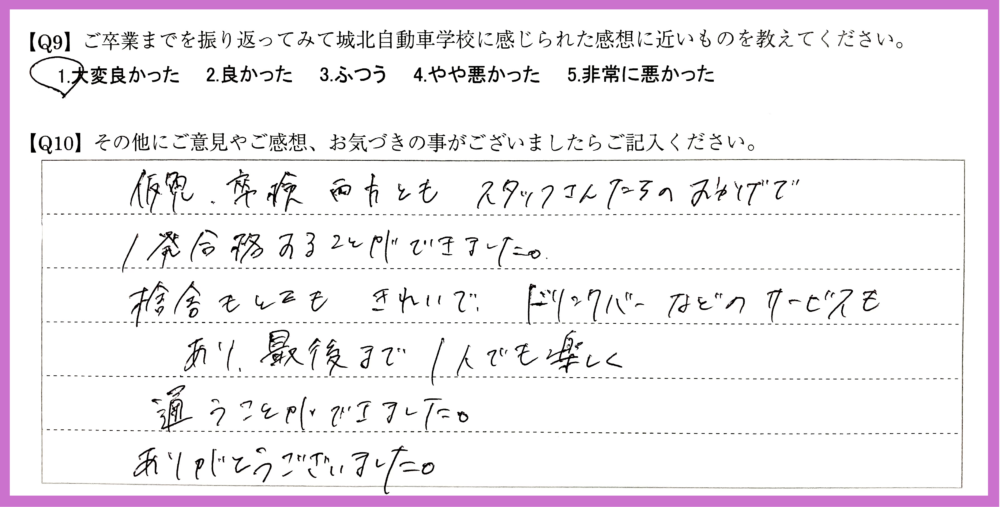 【Q9】ご卒業までを振り返ってみて城北自動車学校に感じられた感想に近いものを教えてください。
1.大変良かった 2.良かった 3.ふつう 4.やや悪かった 5.非常に悪かった
【Q10】その他にご意見やご感想、お気づきの事がございましたらご記入ください。
仮免、卒検 両方とも スタッフさんたちのおかげで
1発合格することができました。
校舎もとても きれいで、ドリンクバーなどのサービスも
あり、最後まで1人でも楽しく
通うことができました。
ありがとうございました。